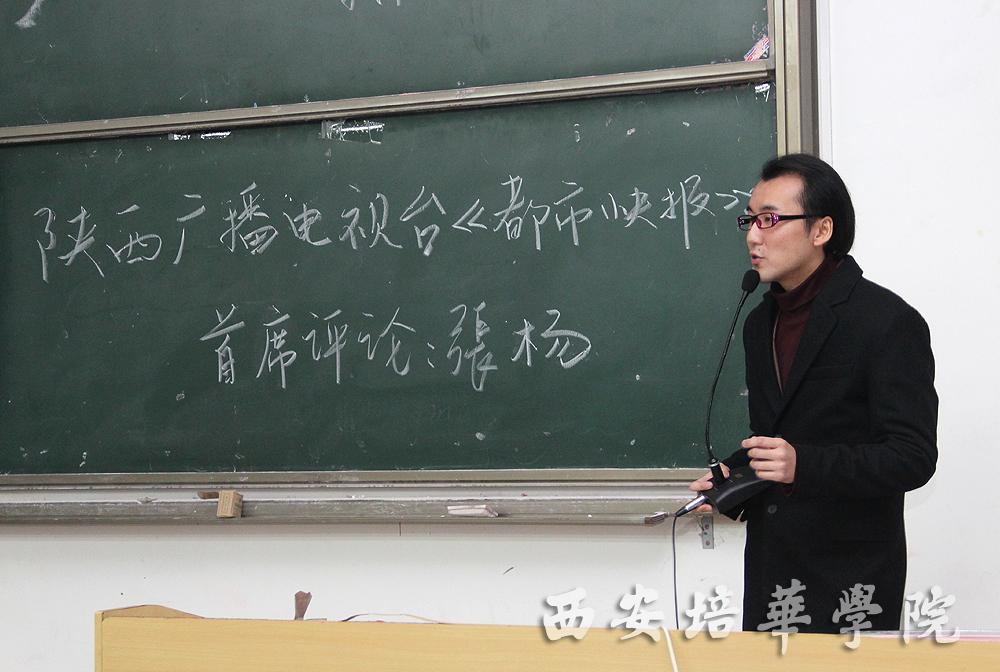 陕西广播电视台《都市快报》
首席评论:張杨
西安培華學院